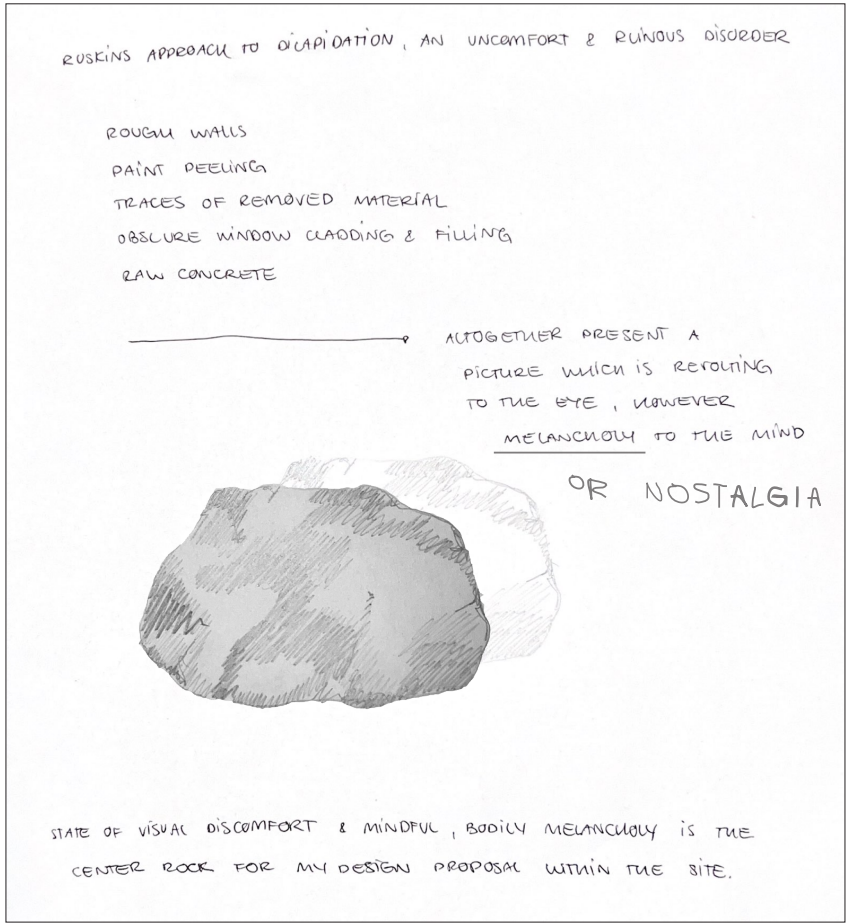 RUSKINS APPROACH TO DICAPIDATION, AN UNCOMFORT & RUINOUS DISORDER
ROUGH WALLS
PAINT PEELING
TRACES OF REMOVED MATERIAL
OBSCURE WINDOW CLADDING & FILLING
RAW CONCRETE
ALTOGETHER PRESENT A
PICTURE WHICH IS REVOLTING
TO THE EYE, HOWEVER
MELANCHOLY TO THE MIND
OR NOSTALGIA
STATE OF VISUAL DISCOMFORT & MINDFUL, BODILY MELANCHOLY IS THE
CENTER ROCK FOR MY DESIGN PROPOSAL WITHIN THE SITE.